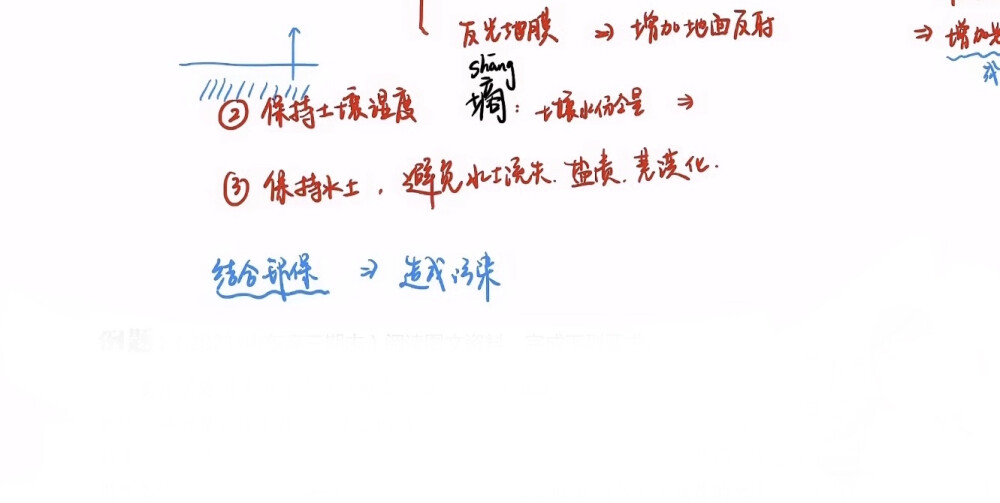 反光地膜 => 增加地面反射 => 增加光
shāng
② 保持土壤湿度 墒：土壤水份含量 =>
③ 保持水土，避免水土流失.盐渍.荒漠化.
结合环保 => 造成污染
例题